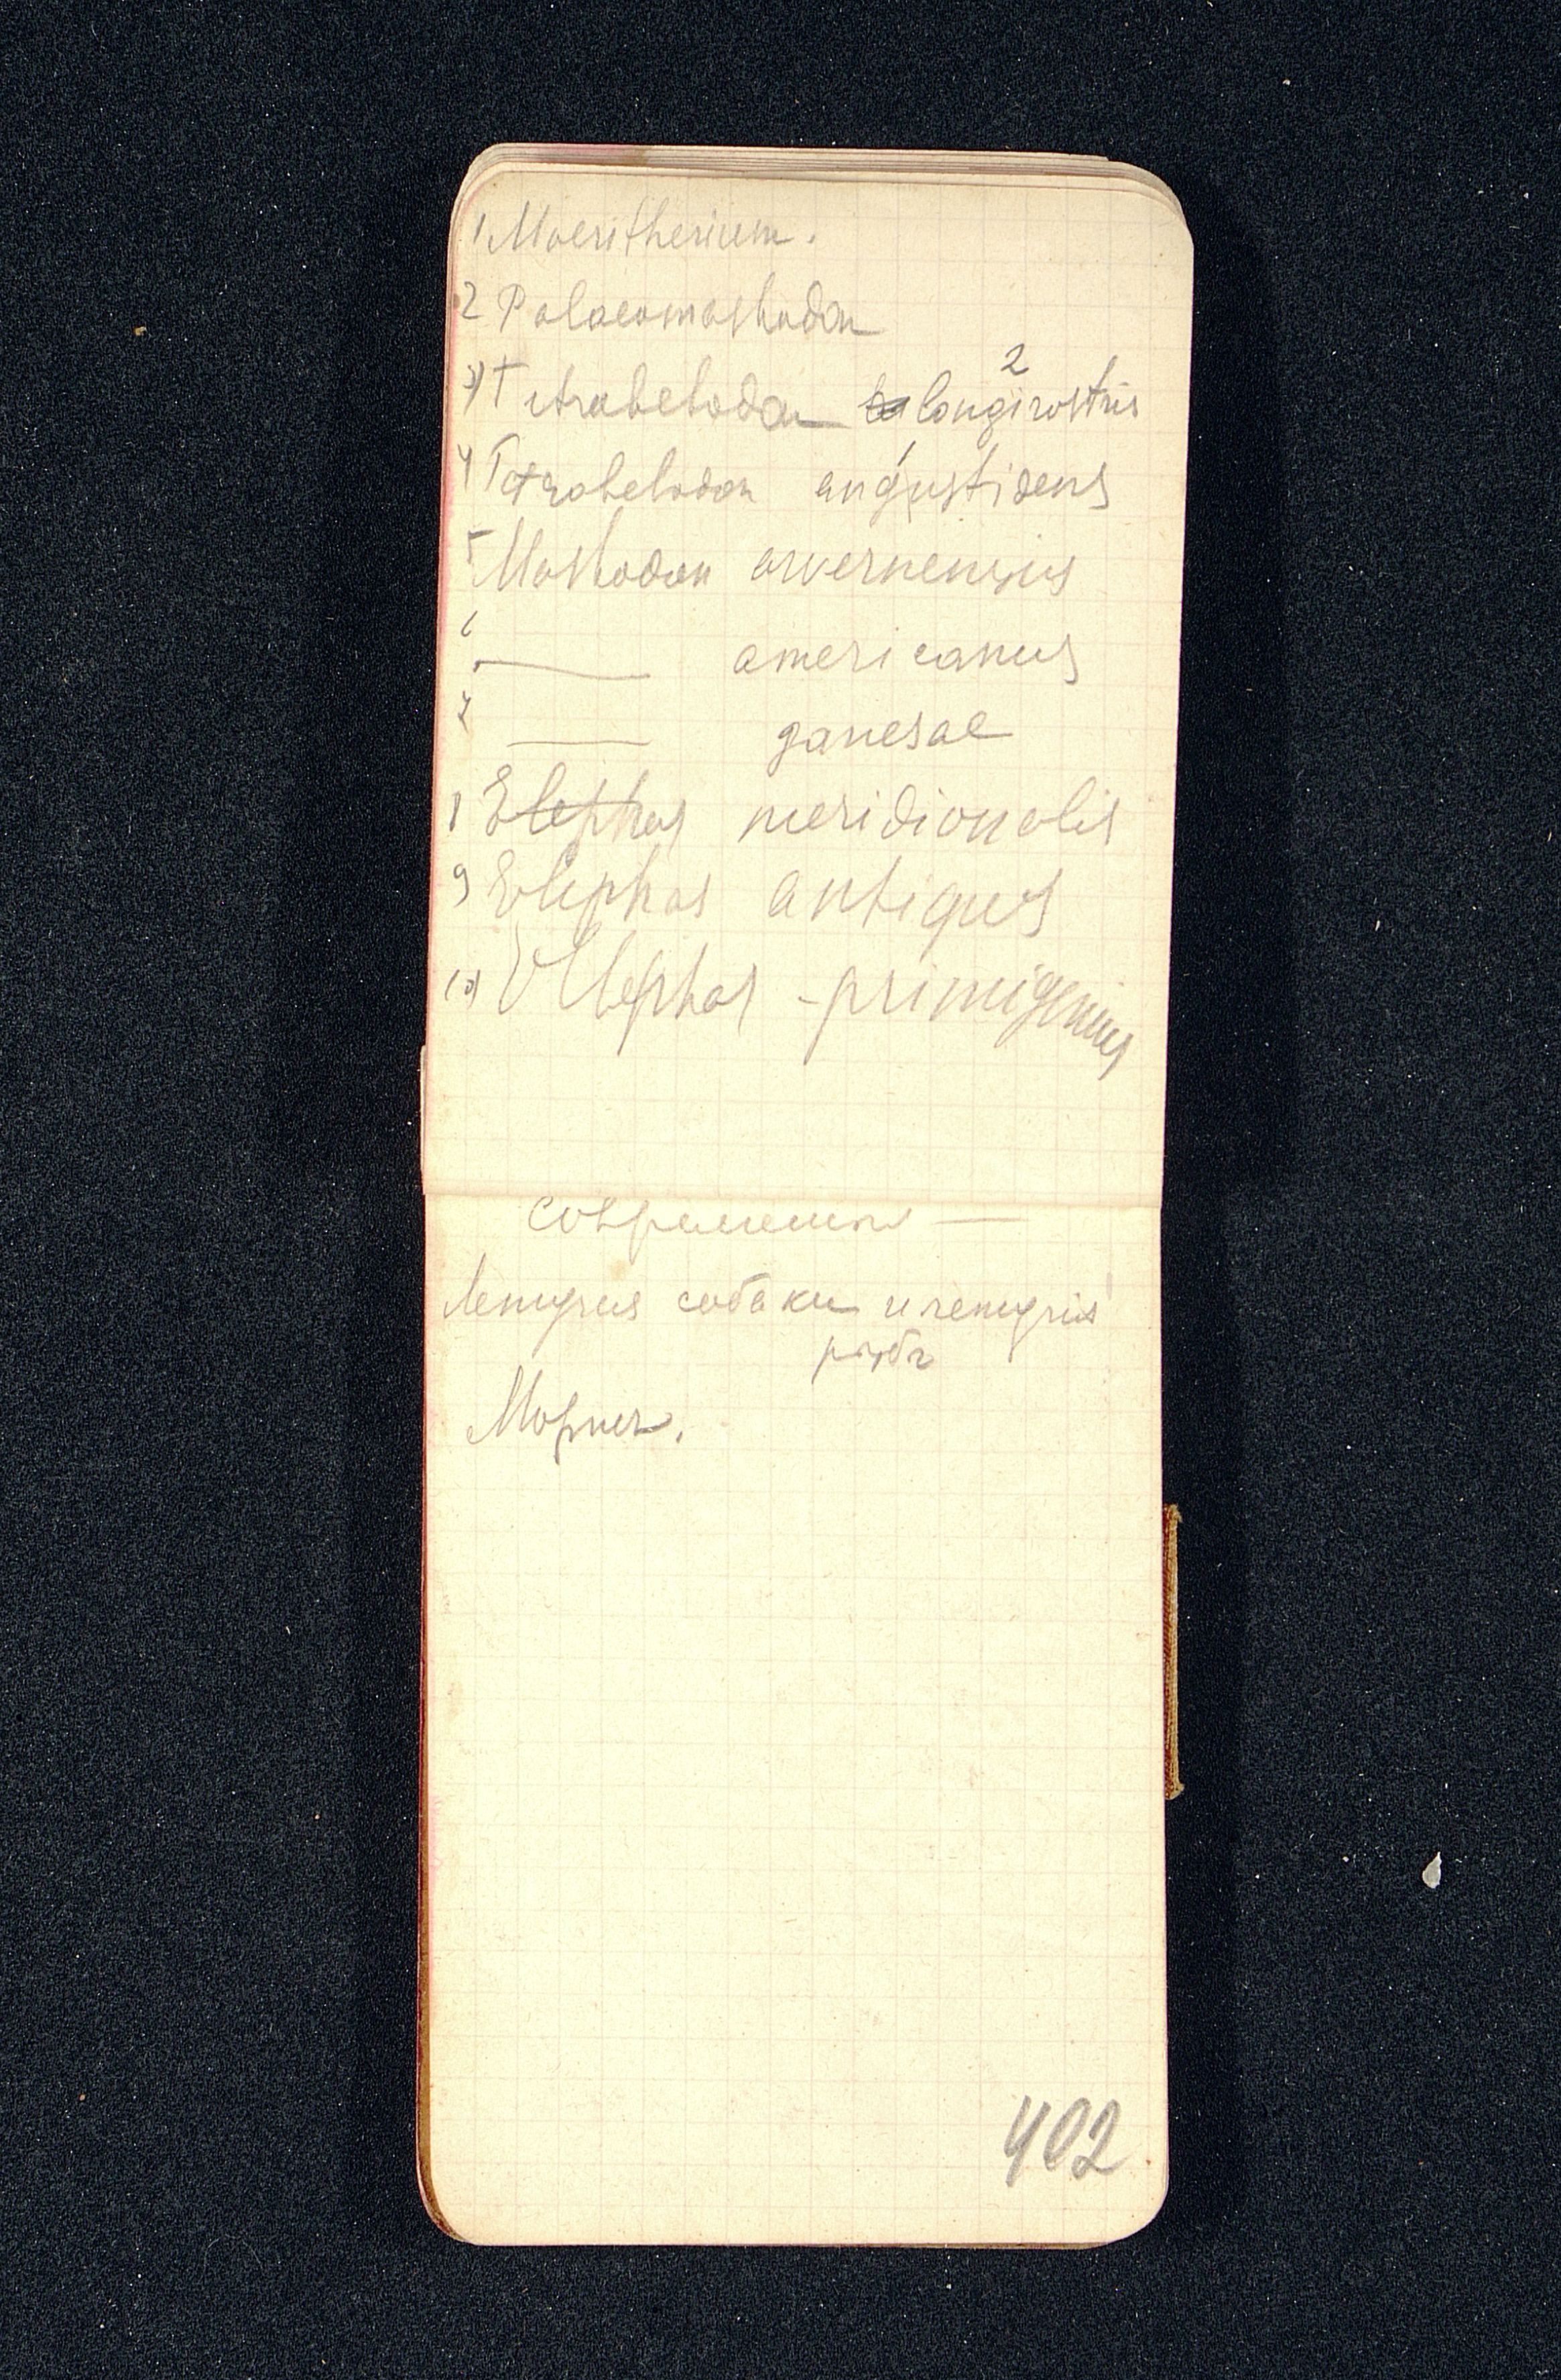 1 Moeritherium.
2 Palaeomastodon
3) Tetrabelodon longirostris 2
4 Tetrabelodon angustidens 1
5 Mastodon arvernensis
6 — americanus
7 — ganesae
8 Elephas meridionalis
9 Elephas antiqus
10) Elephas - primigenius
—
собаки
рыбы
402